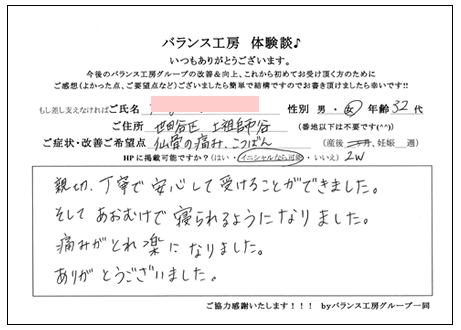 バランス工房 体験談♪
いつもありがとうございます。
今後のバランス工房グループの改善&向上、これから初めてお受け頂く方のために
ご感想(よかった点、ご要望点など)ございましたら簡単で結構ですのでお書き頂けましたら幸いです!!
もし差し支えなければご氏名 性別 男・女 年齢 32 代
ご住所 世田谷区 上祖師谷 (番地以下は不要です(^^))
ご症状・改善ご希望点 仙骨の痛み、こつばん (産後 ヶ月、妊娠 週)
HPに掲載可能ですか?(はい・イニシャルなら可能・いいえ) 2W
親切、丁寧で安心して受けることができました。
そしてあおむけで寝られるようになりました。
痛みがとれ楽になりました。
ありがとうございました。
ご協力感謝いたします!!! byバランス工房グループ一同